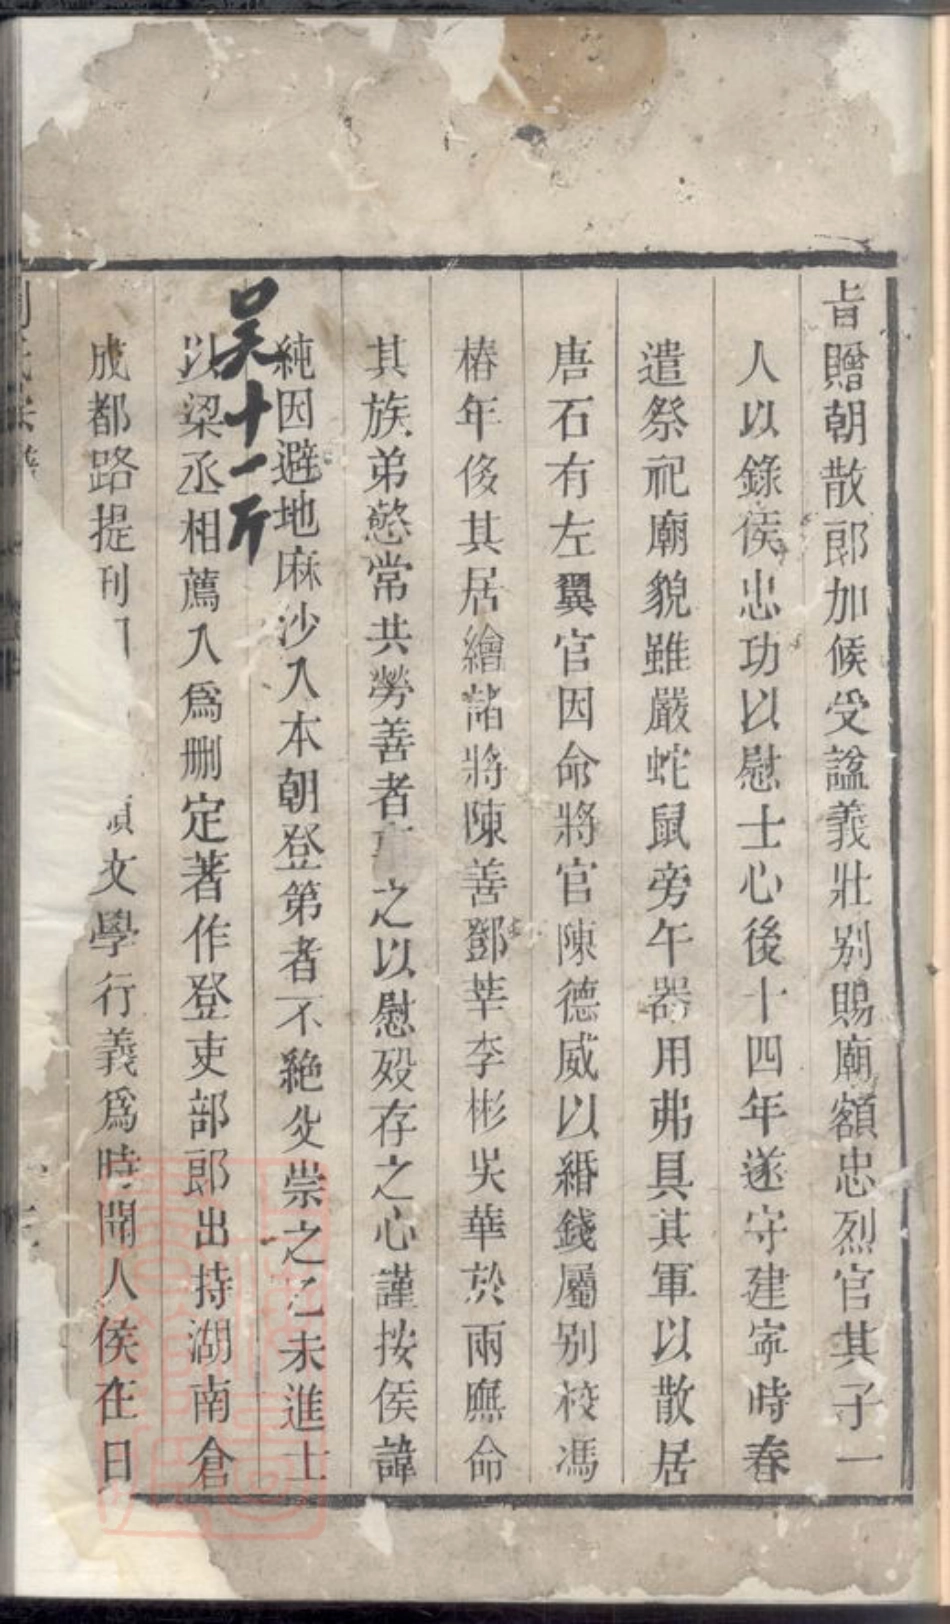 旨贈朝散郎加候受諡義壯别賜廟額忠烈官其子一
人以錄侯忠功以慰士心後十四年遂守建寧時春
遣祭祀廟貌雖嚴蛇鼠旁午器用弗具其軍以散居
唐石有左翼官因命將官陳德威以緡錢屬别校馮
椿年俻其居繪諸將陳善鄧莘李彬吳華於兩廡命
其族弟慾常共勞善者之以慰殁存之心謹按侯諱
純因避地麻沙入本朝登第者不絶父崇之乙未進士
以梁丞相薦入爲删定著作登吏部郎出持湖南倉
成都路提刑文學行義爲時聞人侯在日
吴十一斤